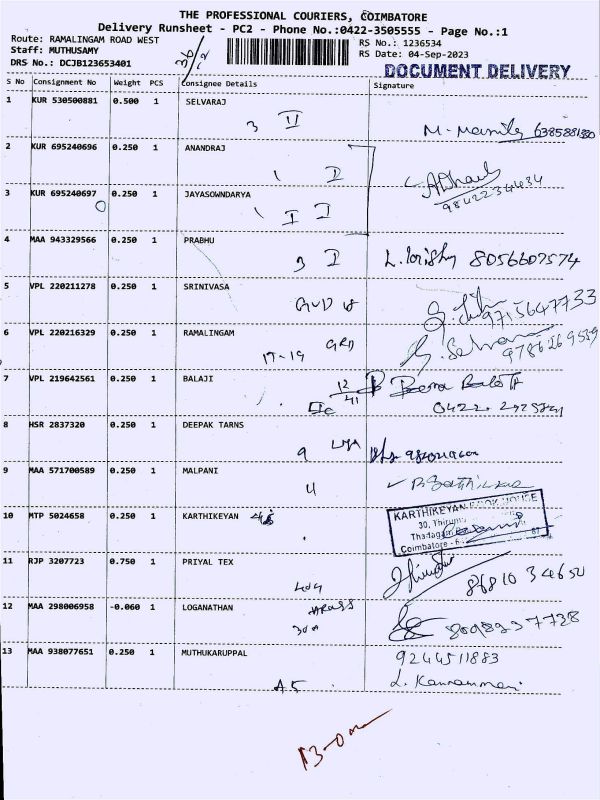 THE PROFESSIONAL COURIERS, COIMBATORE
Delivery Runsheet - PC2 - Phone No.:0422-3505555 - Page No.:1
Route: RAMALINGAM ROAD WEST RS No.: 1236534
Staff: MUTHUSAMY RS Date: 04-Sep-2023
DRS No.: DCJB123653401
DOCUMENT DELIVERY
S No Consignment No Weight PCS Consignee Details Signature
1 KUR 530500881 0.500 1 SELVARAJ
3 II
6385881380
2 KUR 695240696 0.250 1 ANANDRAJ
1 I
9842234434
3 KUR 695240697 0.250 1 JAYASOWNDARYA
1 I I
4 MAA 943329566 0.250 1 PRABHU
3 I
8056607574
5 VPL 220211278 0.250 1 SRINIVASA
9715647733
6 VPL 220216329 0.250 1 RAMALINGAM
17-19 GRD
9786269539
7 VPL 219642561 0.250 1 BALAJI
12/41
0422
8 HSR 2837320 0.250 1 DEEPAK TARNS
9
9 MAA 571700589 0.250 1 MALPANI
4
10 MTP 5024658 0.250 1 KARTHIKEYAN
KARTHIKEYAN BOOK HOUSE
30,
Coimbatore
11 RJP 3207723 0.750 1 PRIYAL TEX
86810 34650
12 MAA 298006958 -0.060 1 LOGANATHAN
13 MAA 938077651 0.250 1 MUTHUKARUPPAL
9244511883
A5